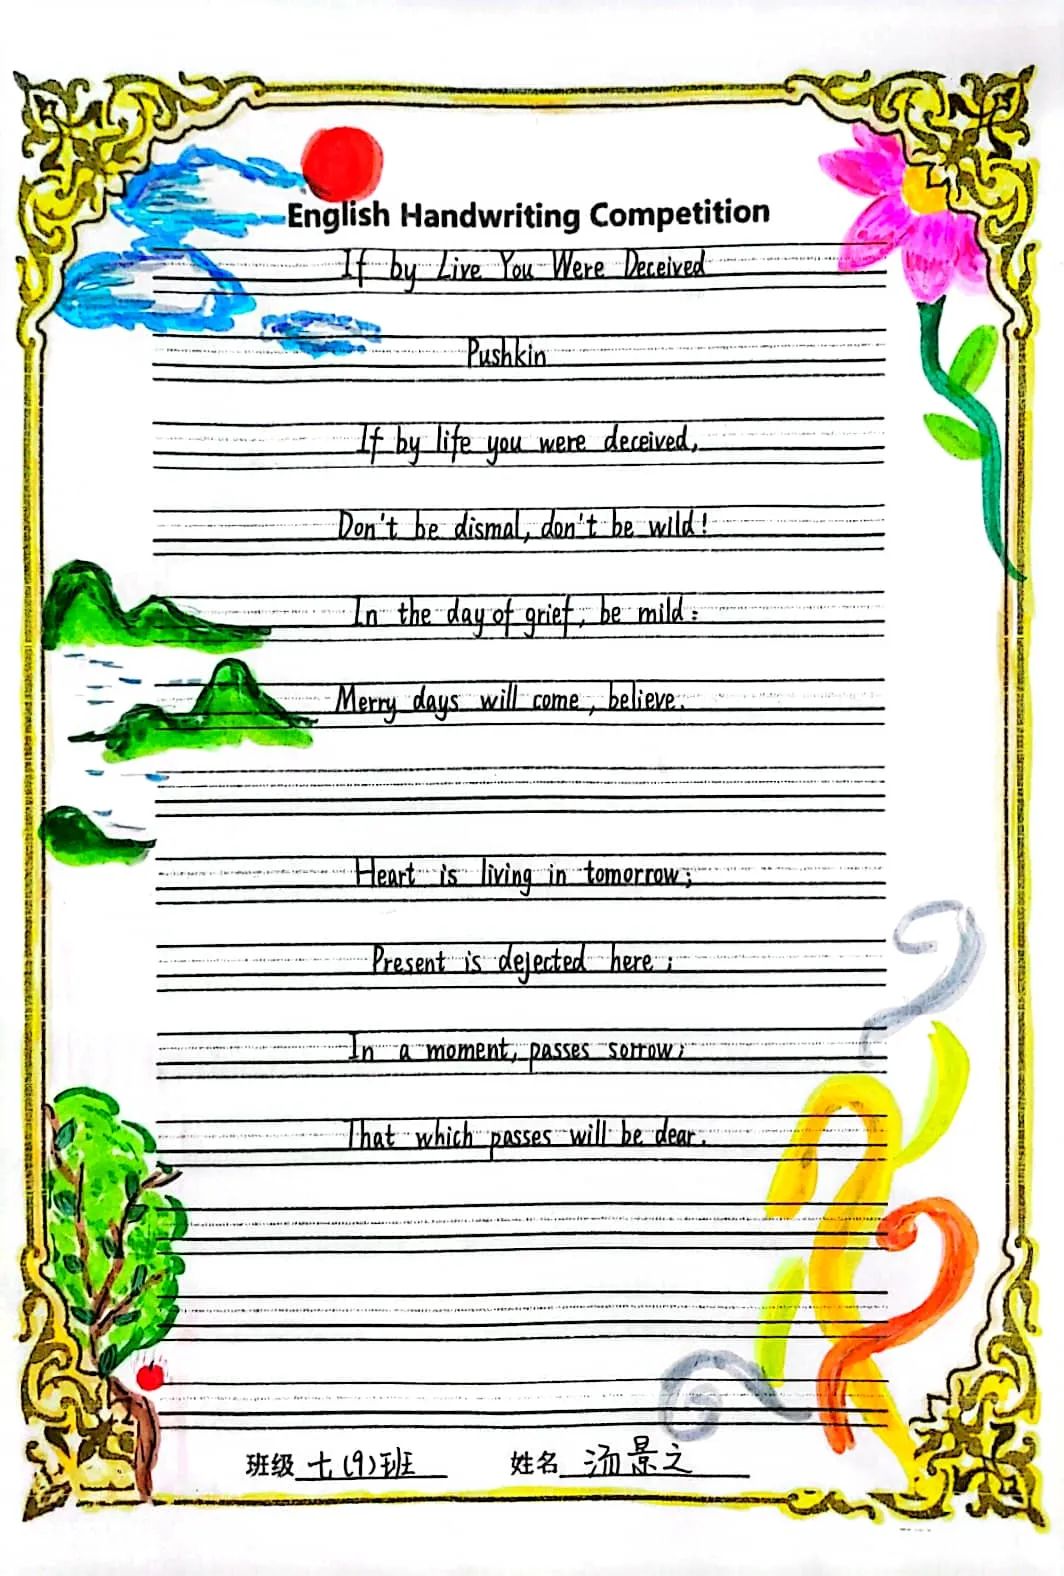 English Handwriting Competition
If by Live You Were Deceived
Pushkin
If by life you were deceived,
Don't be dismal, don't be wild!
In the day of grief, be mild:
Merry days will come, believe.
Heart is living in tomorrow;
Present is dejected here;
In a moment, passes sorrow;
That which passes will be dear.
班级 七(9)班 姓名 汤景之